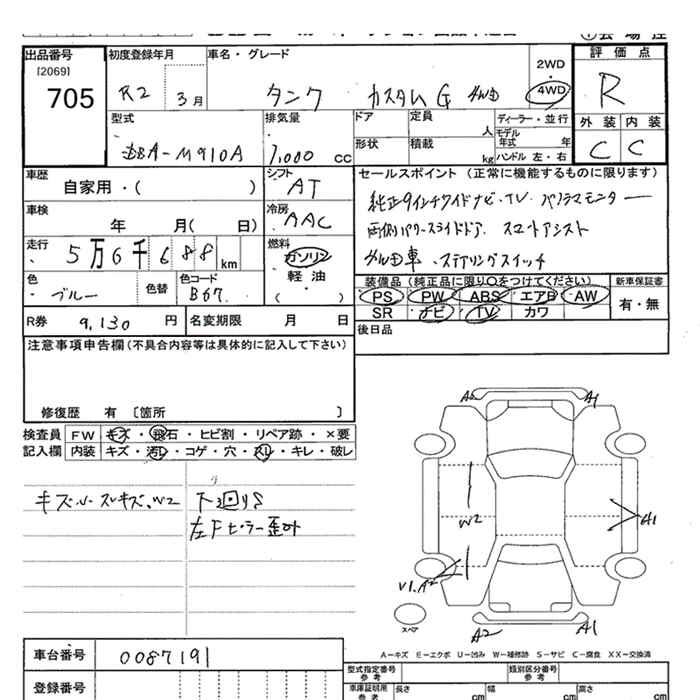 出品番号 初度登録年月 車名・グレード 2WD 評価点
[2069]
705 R2 3月 タンク カスタムG 4WD 4WD R
型式 排気量 ドア 定員 人 ディーラー・並行 外装 内装
DBA-M910A 1,000 cc 形状 積載 kg モデル年式 年 ハンドル 左・右 C C
車歴 シフト セールスポイント (正常に機能するものに限ります)
自家用・( ) AT 純正9インチワイドナビ・TV・パノラマモニター
車検 冷房 両側パワースライドドア、スマートアシスト
年 月( 日) AAC 4WD車、ステアリングスイッチ
走行 燃料
5万6千688km ガソリン
色 色替 色コード 軽油 装備品 (純正品に限り〇をつけてください) 新車保証書
ブルー B67 ( ) PS PW ABS エアB AW 有・無
SR ナビ TV カワ
R券 9,130円 名変期限 月 日 後日品
注意事項申告欄 (不具合内容等は具体的に記入して下さい)
修復歴 有 〔箇所 〕
検査員 FW キズ・飛石・ヒビ割・リペア跡・×要
記入欄 内装 キズ・汚レ・コゲ・穴・スレ・キレ・破レ
下回りS
左Fピラー歪み
A1
W2 A1
スペア
A2 A1
A-キズ E-エクボ U-凹み W-補修跡 S-サビ C-腐食 XX-交換済
車台番号 0087191 型式指定番号 参考 類別区分番号 参考
登録番号 車庫証明用 参考 長さ cm 幅 cm 高さ cm